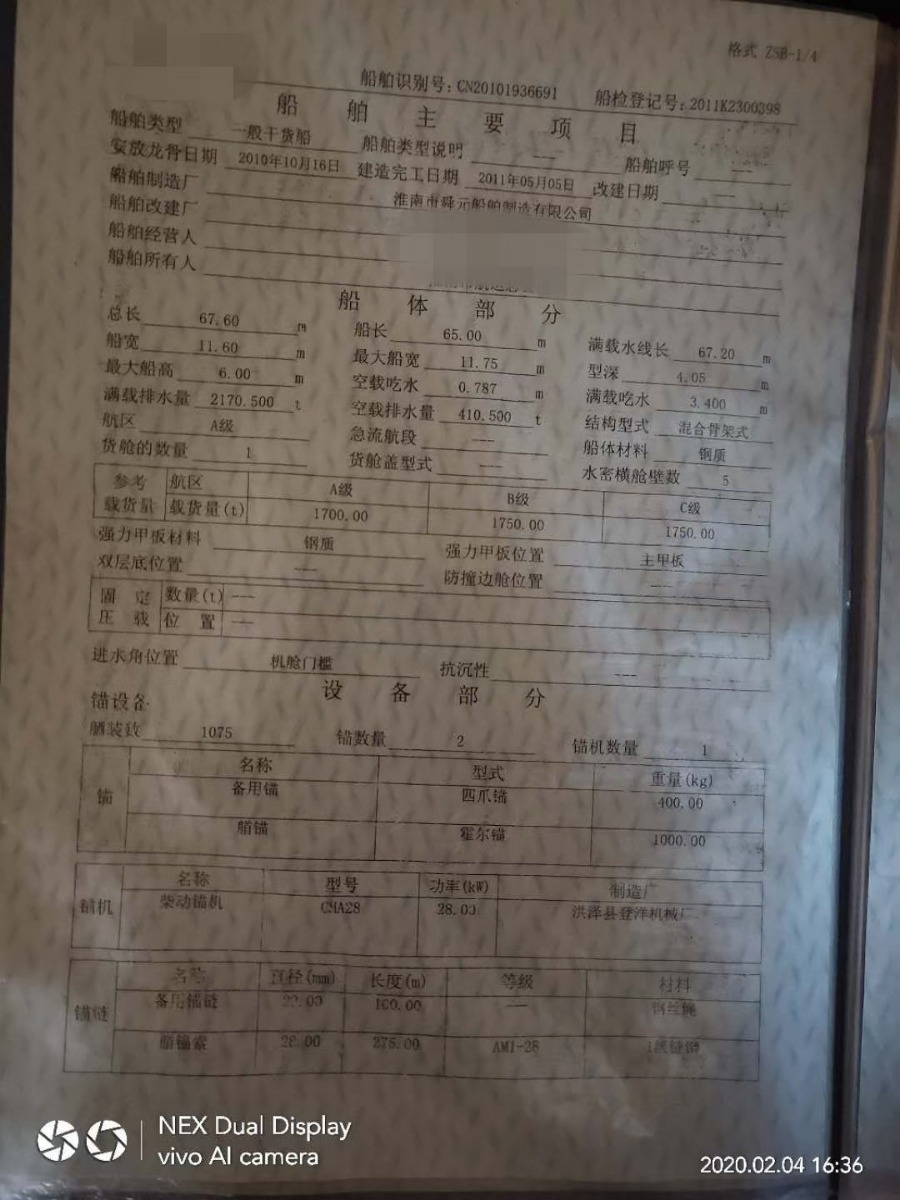 格式 ZSB-1/4
船舶识别号：CN20101936691 船检登记号：2011K2300398
船舶主要项目
船舶类型 一般干货船 船舶类型说明 --- 船舶呼号 ---
安放龙骨日期 2010年10月16日 建造完工日期 2011年05月05日 改建日期 ---
船舶制造厂 淮南市舜元船舶制造有限公司
船舶改建厂
船舶经营人
船舶所有人
船体部分
总长 67.60 m 船长 65.00 m 满载水线长 67.20 m
船宽 11.60 m 最大船宽 11.75 m 型深 4.05 m
最大船高 6.00 m 空载吃水 0.787 m 满载吃水 3.400 m
满载排水量 2170.500 t 空载排水量 410.500 t 结构型式 混合骨架式
航区 A级 急流航段 --- 船体材料 钢质
货舱的数量 1 货舱盖型式 --- 水密横舱壁数 5
参考载货量 航区 A级 B级 C级
载货量(t) 1700.00 1750.00 1750.00
强力甲板材料 钢质 强力甲板位置 主甲板
双层底位置 --- 防撞边舱位置 ---
固定压载 数量(t) ---
位置 ---
进水角位置 机舱门槛 抗沉性 ---
设备部分
锚设备
舾装数 1075 锚数量 2 锚机数量 1
锚 名称 型式 重量(kg)
备用锚 四爪锚 400.00
艏锚 霍尔锚 1000.00
锚机 名称 型号 功率(kW) 制造厂
柴动锚机 CMA28 28.00 洪泽县登洋机械厂
锚链 名称 直径(mm) 长度(m) 等级 材料
备用锚链 22.00 100.00 --- 钢丝绳
艏锚索 28.00 275.00 AM1-28
NEX Dual Display
vivo AI camera
2020.02.04 16:36